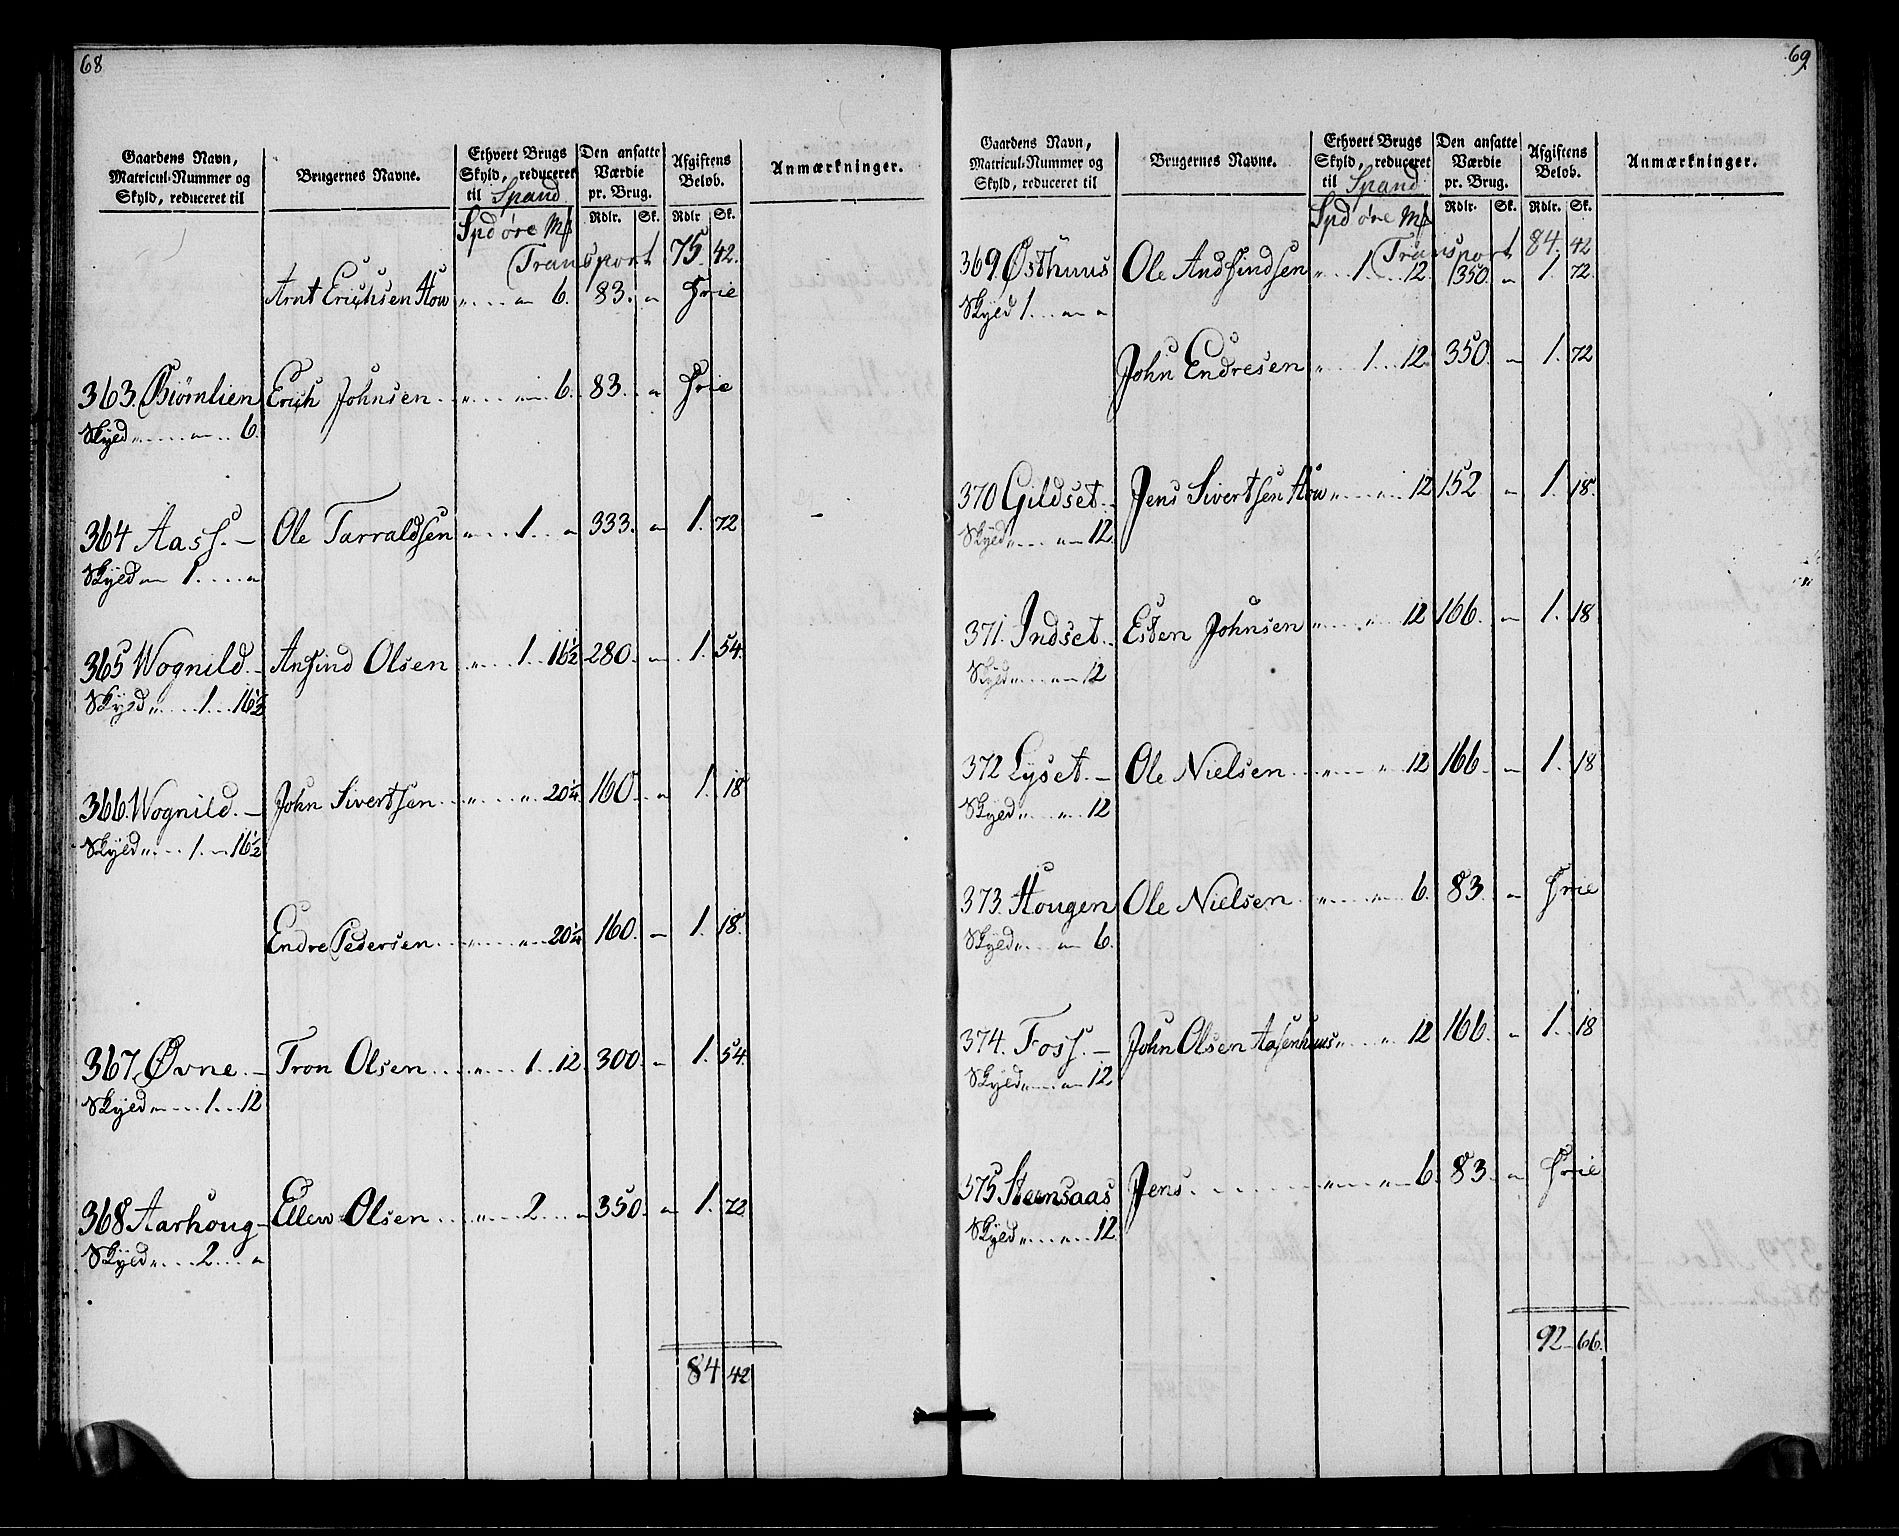 68
Gaardens Navn, Matricul-Nummer og Skyld, reduceret til
Brugernes Navne.
Ethvert Brugs Skyld, reduceret til Spand
Den ansatte Værdie pr. Brug.
Afgiftens Beløb.
Anmærkninger.
Spd øre Mk
Rdlr. Sk. Rdlr Sk.
Transport 75. 42.
Arnt Erichsen How „ .... „ 6. 83. „ Frie
363. Biørnlien Erich Johnsen .. „ .... „ 6. 83. „ Frie
Skyld „ ..... „ .. 6.
364 Aass. — Ole Tarraldsen „ ... 1 ... „ 333. „ 1. 72
Skyld „ 1. .... „
365 Wognild. — Anfind Olsen „ ... 1. 16½ 280. „ 1. 54.
Skyld „ .... 1 ... 16½
366. Wognild. — John Sivertsen .. „ .... „ 20¼ 160. „ 1. 18
Skyld „ ... 1. „ 16½
Endre Pedersen ... „ .... „ 20¼ 160. — 1. 18.
367. Øvne. — Tron Olsen ... „ ... 1. 12. 300. „ 1. 54.
Skyld „ .... 1 ... 12
368 Aarhoug — Ellew Olsen ... „ ... 2 .... „ 350. „ 1. 72.
Skyld „ .... 2 .... „
84 42
69.
Gaardens Navn, Matricul-Nummer og Skyld, reduceret til
Brugernes Navne.
Ethvert Brugs Skyld, reduceret til Spand
Den ansatte Værdie pr. Brug.
Afgiftens Beløb.
Anmærkninger.
Spd øre Mk
Rdlr. Sk. Rdlr. Sk.
Transport 84. 42
369. Østhuus Ole Andfindsen „ 1 .... 12. 350. „ 1. 72.
Skyld 1 ... „ „
John Endresen „ ... 1 ... 12. 350. — 1. 72
370 Gildset. — Jens Sivertsen How „ .... „ 12 152 „ 1. 18.
Skyld „ .... „ 12
371. Indset. Esten Johnsen „ .... „ 12 166. — 1. 18.
Skyld „ .... „ 12
372 Lyset. — Ole Nielsen ... „ .... „ 12 166. — 1. 18
Skyld „ ... „ .. 12
373. Hougen Ole Nielsen „ .... „ 6. 83. „ Frie
Skyld „ .... „ 6.
374. Foss. — John Olsen Aasenhuus „ .... „ 12 166. „ 1. 18
Skyld „ .... „ 12
375 Steensaas Jens. ........ „ .... „ 6. 83. „ Frie
Skyld „ .... „ .. 12.
92 — 66.